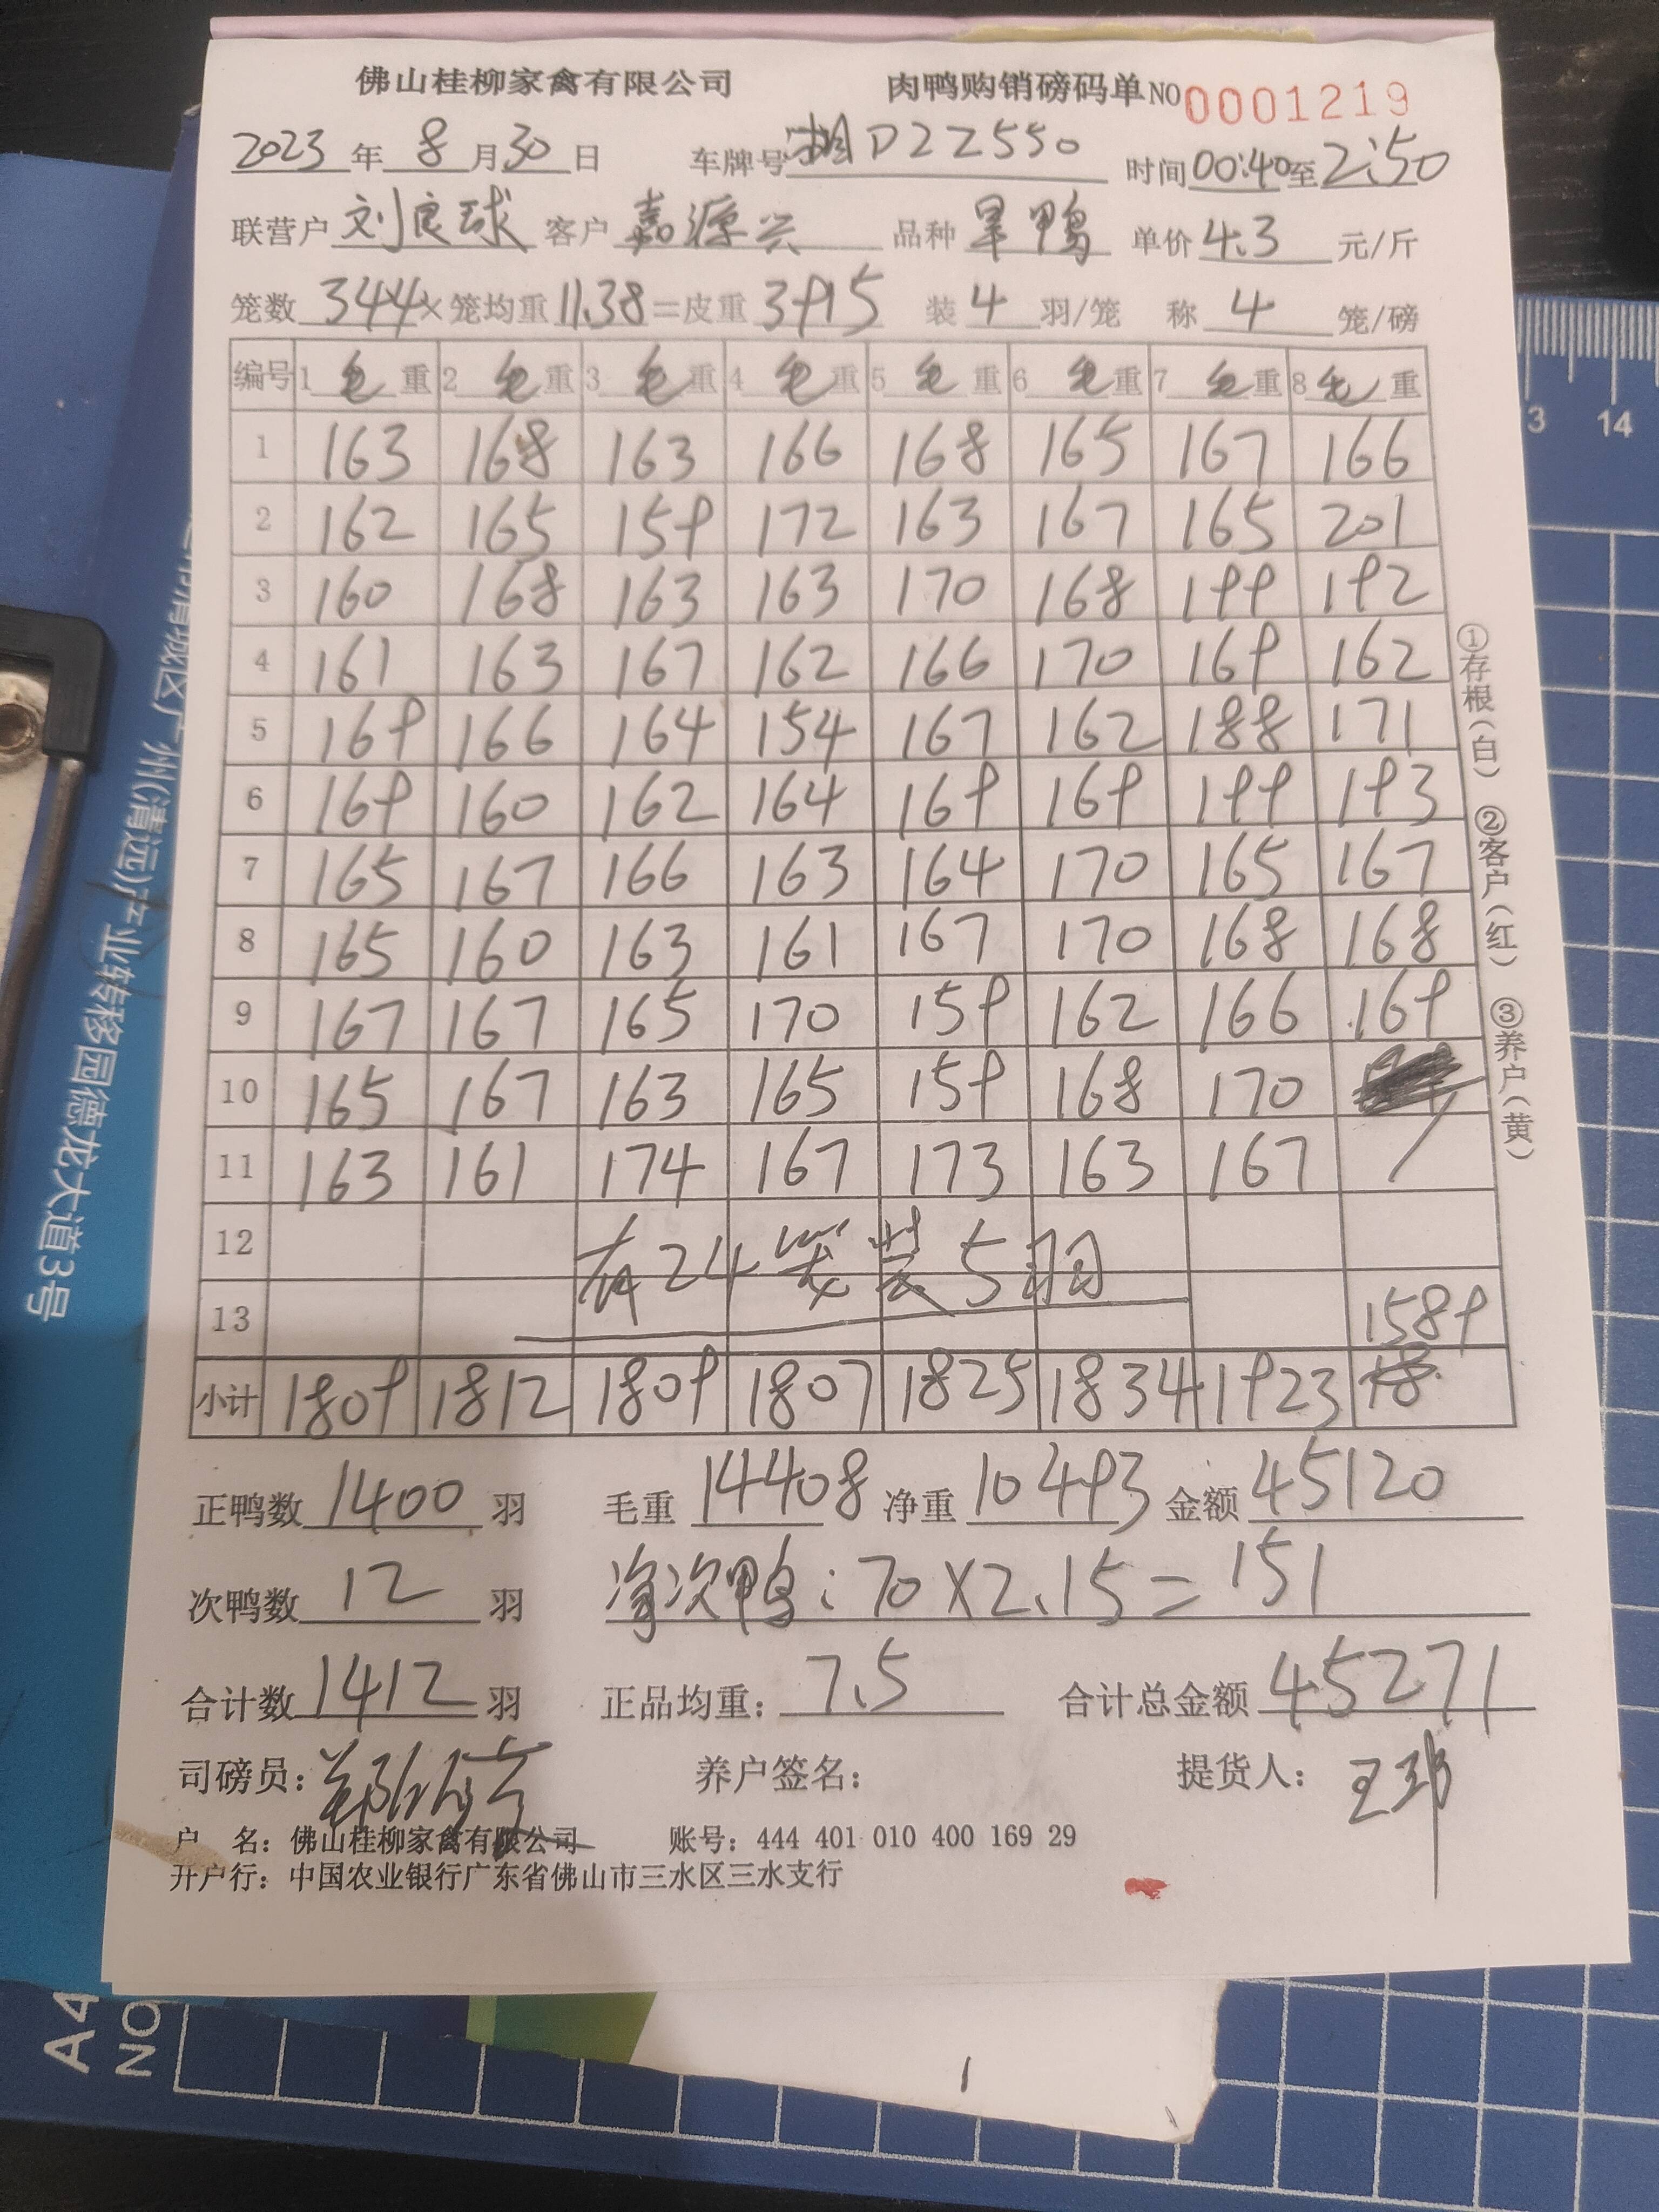 佛山桂柳家禽有限公司 肉鸭购销磅码单 NO 0001219
2023 年 8 月 30 日 车牌号 湘D2Z550 时间 00:40 至 2:50
联营户 刘良球 客户 嘉源兴 品种 旱鸭 单价 4.3 元/斤
笼数 344 × 笼均重 11.38 = 皮重 3915 装 4 羽/笼 称 4 笼/磅
编号 1 毛 重 2 毛 重 3 毛 重 4 毛 重 5 毛 重 6 毛 重 7 毛 重 8 毛 重
1 163 168 163 166 168 165 167 166
2 162 165 159 172 163 167 165 201
3 160 168 163 163 170 168 199 192
4 161 163 167 162 166 170 169 162
5 169 166 164 154 167 162 188 171
6 169 160 162 164 169 169 199 193
7 165 167 166 163 164 170 165 167
8 165 160 163 161 167 170 168 168
9 167 167 165 170 159 162 166 169
10 165 167 163 165 159 168 170
11 163 161 174 167 173 163 167 /
12 有24笼装5羽
13 1589
小计 1809 1812 1809 1807 1825 1834 1923 18
正鸭数 1400 羽 毛重 14408 净重 10493 金额 45120
次鸭数 12 羽 净次鸭: 70×2.15=151
合计数 1412 羽 正品均重: 7.5 合计总金额 45271
司磅员: 养户签名: 提货人:
户 名: 佛山桂柳家禽有限公司 账号: 444 401 010 400 169 29
开户行: 中国农业银行广东省佛山市三水区三水支行
①存根(白) ②客户(红) ③养户(黄)
广州(清远)产业转移园德龙大道3号
3 14
A4
NO